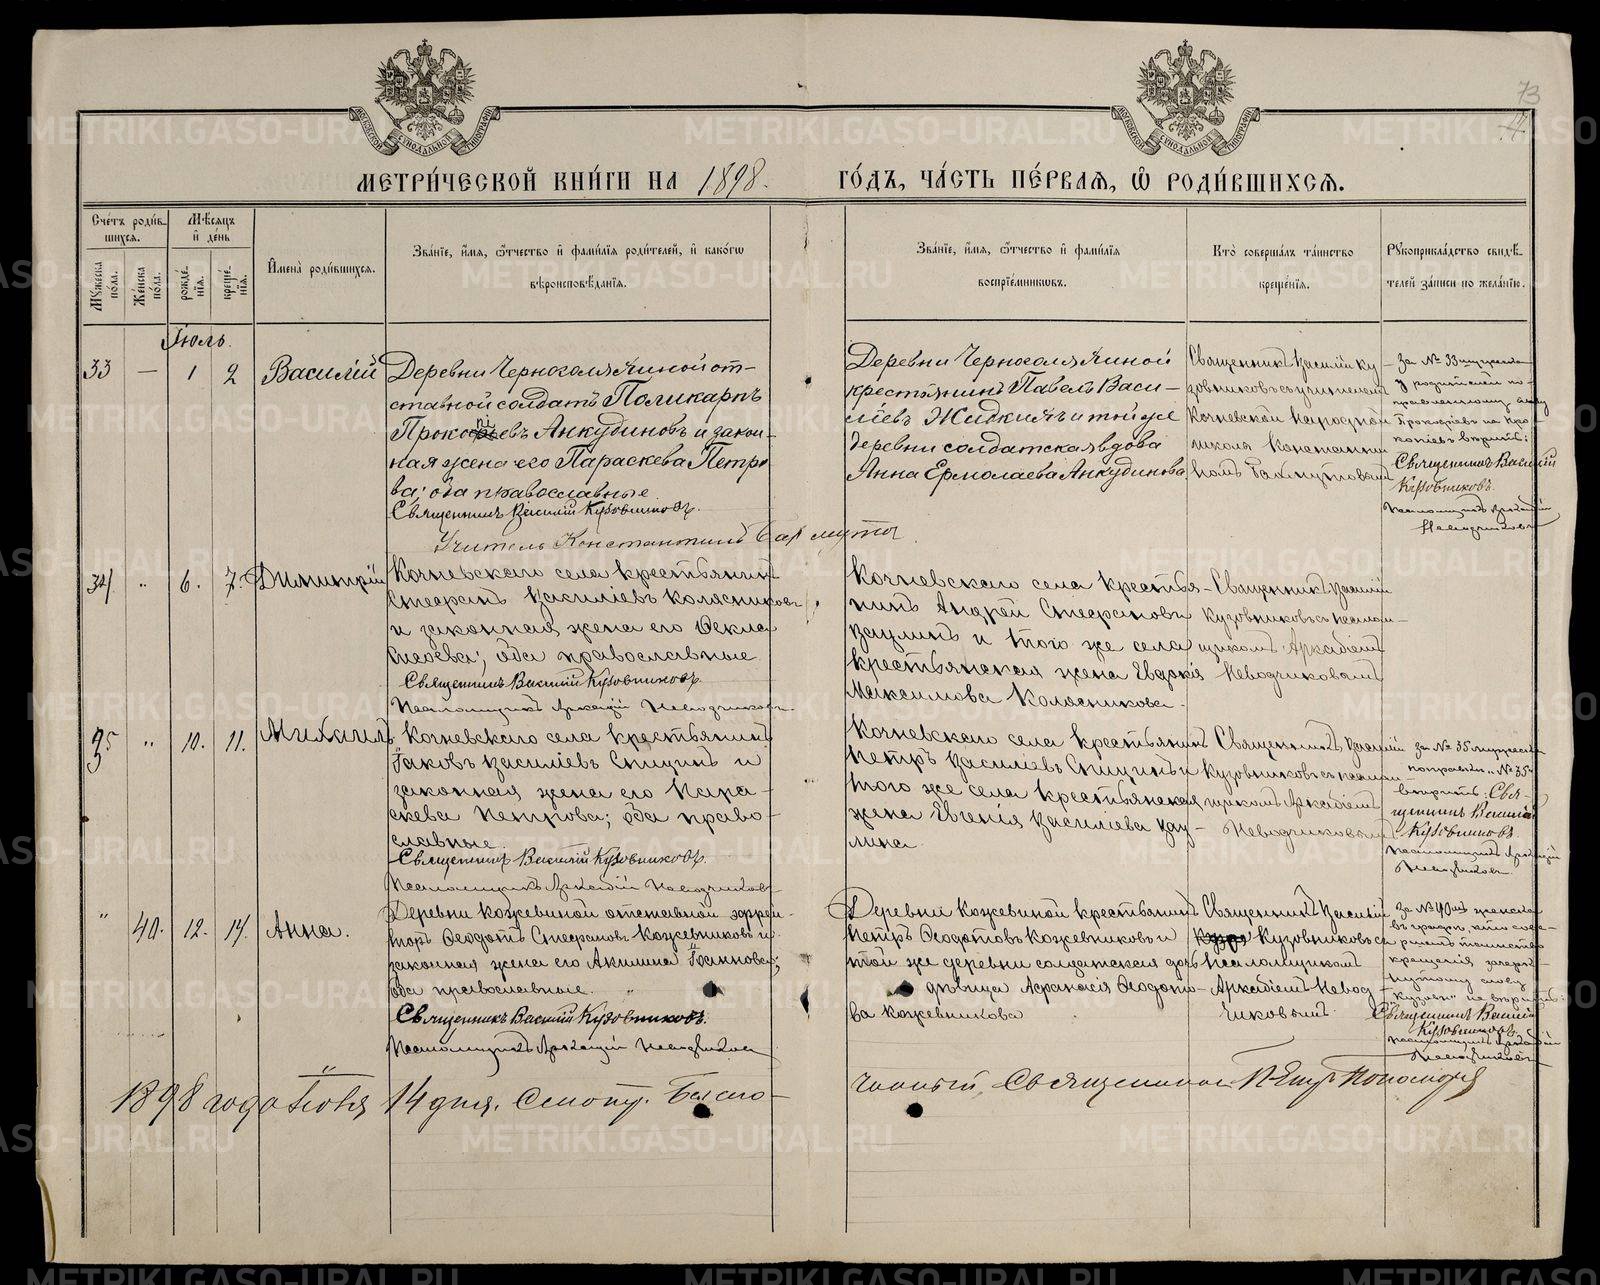 73
МЕТРИ́ЧЕСКОЙ КНИ́ГИ НА 1898. ГО́ДЪ, ЧА́СТЬ ПЕ́РВАЯ, Ѡ РОДИ́ВШИХСЯ.
Сче́тъ роди́в-
шихся.
Му́жеска по́ла.
Же́нска по́ла.
Мѣ́сяцъ
и де́нь
рожде́нїя.
креще́нїя.
Имена̀ роди́вшихся.
Зва́нїе, и́мя, ѻ́тчество и фами́лїя роди́телей, и како́гѡ
вѣроисповѣ́данїя.
Зва́нїе, и́мя, ѻ́тчество и фами́лїя
воспрїе́мникѡвъ.
Кто̀ соверша́лъ та́инство
креще́нїя.
Рꙋкоприкла́дство свидѣ́-
телей за́писи по жела́нїю.
Іюль.
33 — 1 2 Василій
Деревни Черноголяткиной от-
ставной солдатъ Поликарпъ
Прокопьевъ Анкудиновъ и закон-
ная жена его Параскева Петро
ва; оба православные
Священникъ Василій Кузовниковъ.
Учитель Константинъ
Деревни Черноголяткиной
крестьянинъ Павелъ Васи-
ліевъ Жидкихъ и той же
деревни солдатская вдова
Анна Ермолаева Анкудинова
Священникъ Василій Ку-
зовниковъ съ учителемъ
Кочневской народной
школы Константи-
номъ
За № 33
Прокопіевъ
вѣрить:
Священникъ Василій
Кузовниковъ.
Псаломщикъ Аркадій
Неводчиковъ
34 „ 6. 7. Димитрій
Кочневскаго села крестьянинъ
Стефанъ Василіевъ Колясниковъ
и законная жена его Ѳекла
оба православные
Священникъ Василій Кузовниковъ.
Псаломщикъ Аркадій Неводчиковъ.
Кочневскаго села крестья-
нинъ Андрей Стефановъ
Ваулинъ и того же села
крестьянская жена Евдокія
Максимова Колясникова.
Священникъ Василій
Кузовниковъ съ псалом-
щикомъ Аркадіемъ
Неводчиковымъ
35 „ 10. 11. Михаилъ
Кочневскаго села крестьянинъ
Іаковъ Василіевъ Спицинъ и
законная жена его Пара-
скева Петрова; оба право-
славные.
Священникъ Василій Кузовниковъ.
Псаломщикъ Аркадій Неводчиковъ
Кочневскаго села крестьянинъ
Петръ Василіевъ Спицинъ и
того же села крестьянская
жена Евгенія Василіева Вау-
лина.
Священникъ Василій
Кузовниковъ съ псалом-
щикомъ Аркадіемъ
Неводчиковымъ
за № 35
„№ 35“
вѣрить: Свя-
щенникъ Василій
Кузовниковъ
Псаломщикъ Аркадій
Неводчиковъ.
„ 40. 12. 14. Анна.
Деревни Кожевиной отставной ефрей-
торъ Ѳеодотъ Стефановъ Кожевниковъ и
законная жена его Акилина Іоаннова;
оба православные.
Священникъ Василій Кузовниковъ.
Псаломщикъ Аркадій Неводчиковъ
Деревни Кожевиной крестьянинъ
Петръ Ѳеодотовъ Кожевниковъ и
той же деревни солдатская дочь
дѣвица Аѳанасія Ѳеодото-
ва Кожевникова
Священникъ Василій
Кузовниковъ съ
псаломщикомъ
Аркадіемъ Невод-
чиковымъ.
За № 40
въ графѣ, кто сове-
ршалъ таинство
крещенія
не вѣрить:
Священникъ Василій
Кузовниковъ.
Псаломщикъ Аркадій
Неводчиковъ
1898 года 14 дня. Благо-
чинный, Священникъ Петръ Пономаревъ